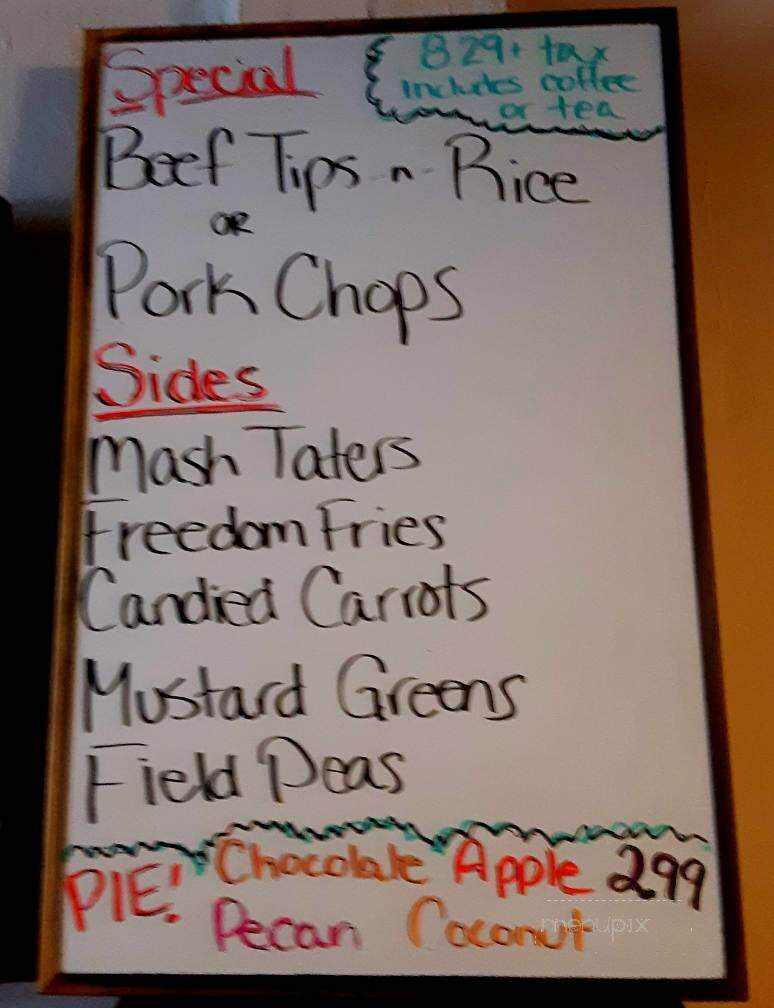 Special
829+ tax
includes coffee
or tea
Beef Tips -n- Rice
OR
Pork Chops
Sides
Mash Taters
Freedom Fries
Candied Carrots
Mustard Greens
Field Peas
PIE! Chocolate Apple 299
Pecan Coconut
menupix